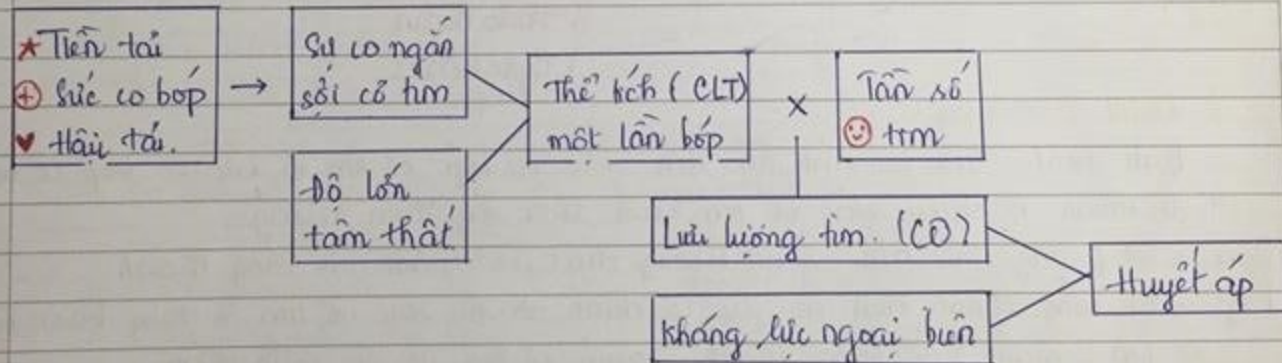 Tiền tải
Sức co bóp
Hậu tải.
→
Sự co ngắn
sợi cơ tim
Độ lớn
tâm thất
Thể tích (CLT)
một lần bóp
×
Tần số
tim
Lưu lượng tim. (CO)
Kháng lực ngoại biên
Huyết áp